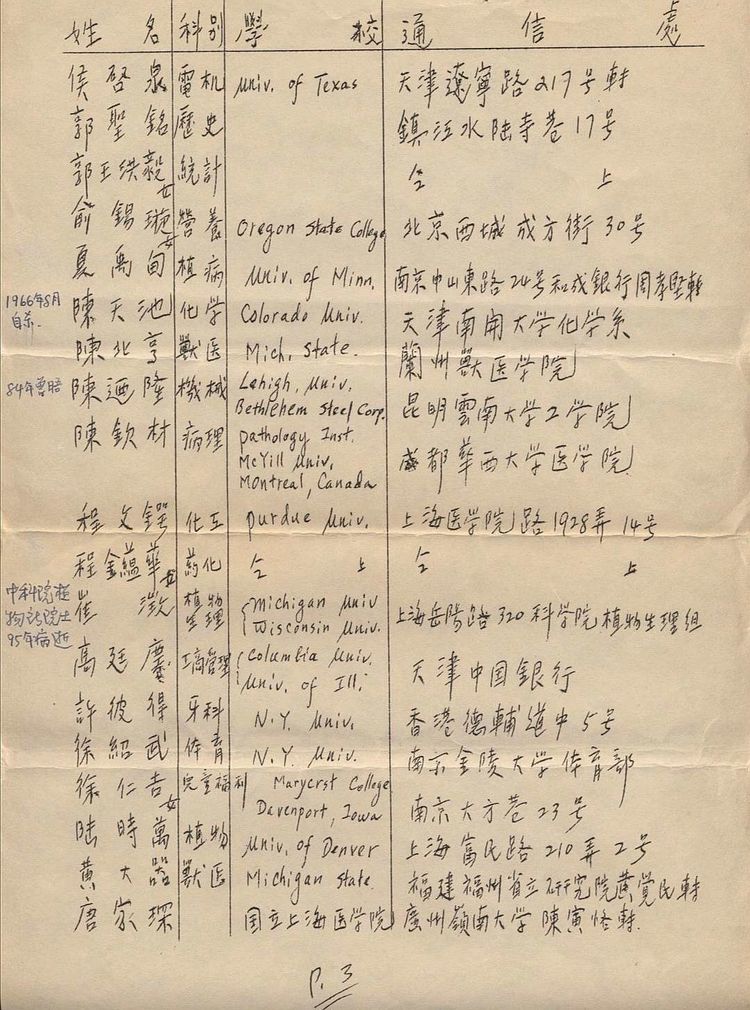 姓 名 科别 學 校 通 信 處
侯啓泉 電机 Univ. of Texas 天津遼寧路217号轉
郭聖銘 歷史 鎮江水陆寺巷17号
郭王洪毅 女 統計 仝 上
俞錫璇 女 營養 Oregon State College 北京西城成方街30号
夏禹甸 植病 Univ. of Minn. 南京中山東路24号和成銀行周孝堅轉
1966年8月
自杀.
陳天池 化学 Colorado Univ. 天津南開大学化学系
陳北亨 獸医 Mich. State. 蘭州獸医学院
84年曾晤
陳迺隆 機械 Lehigh, Univ. Bethlehem Steel Corp. 昆明雲南大学工学院
陳欽材 病理 Pathology Inst. 成都華西大学医学院
McYill Univ,
Montreal, Canada
程文鍔 化工 Purdue Univ. 上海医学院路1928弄14号
程金蘊華 女 葯化 仝 上 仝 上
中科院植
物 院士
95年病逝
崔澂 植物生理 Michigan Univ 上海岳陽路320科学院植物生理组
Wisconsin Univ.
高廷慶 工商管理 Columbia Univ. 天津中国銀行
Univ. of Ill.
許彼得 牙科 N.Y. Univ. 香港德輔道中5号
徐紹武 体育 N.Y. Univ. 南京金陵大学体育部
徐仁吉 女 児童福利 Marycrst College 南京大方巷23号
Davenport, Iowa
陆時萬 植物 Univ. of Denver 上海富民路210弄2号
黄大器 獸医 Michigan State. 福建福州省立研究院黄覺民轉
唐家琛 国立上海医学院 廣州嶺南大学 陳寅恪轉.
P. 3